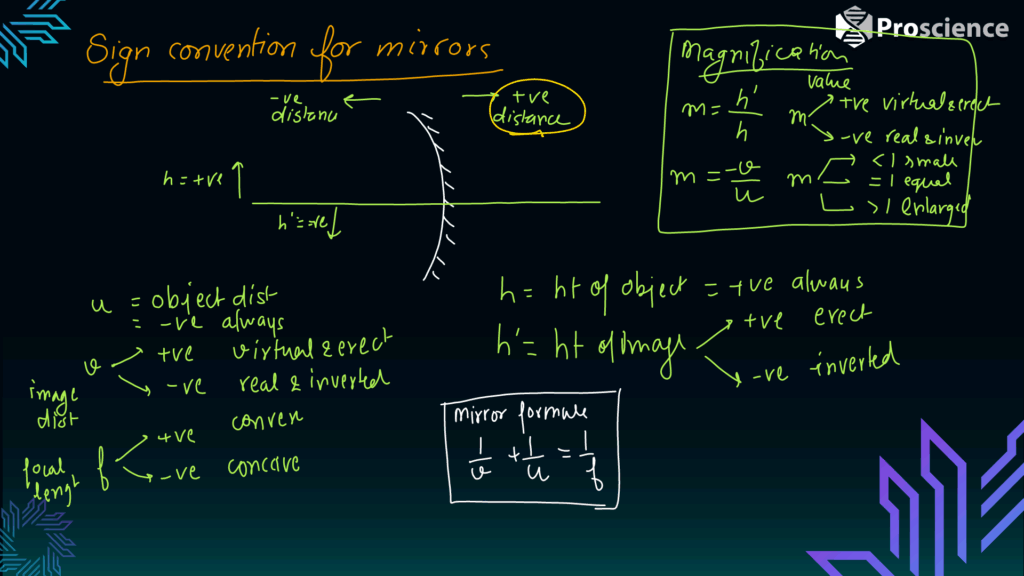 Proscience
Sign convention for mirrors
-ve distanc
+ve distance
h = +ve
h' = -ve
Magnification
value
m = h'/h
m +ve virtual & erect
-ve real & inver
m = -v/u
m < 1 small
= 1 equal
> 1 Enlarged
u = object dist
= -ve always
v +ve virtual & erect
-ve real & inverted
image dist
focal lengt f +ve convex
-ve concave
h = ht of object = +ve always
h' = ht of image +ve erect
-ve inverted
mirror formula
1/v + 1/u = 1/f